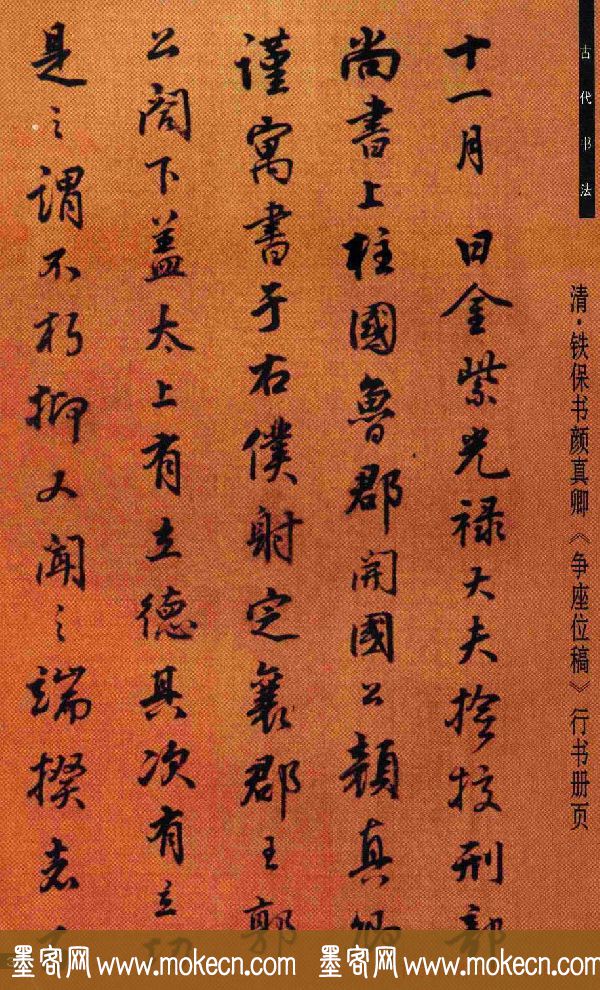 古代书法
清·铁保书颜真卿《争座位稿》行书册页
十一月 日金紫光禄大夫捡校刑部
尚書上柱國魯郡開國公顏真卿
謹寓書于右僕射定襄郡王郭
公閤下蓋太上有立德其次有立功
是之謂不朽抑又聞之端揆者
墨客网 www.mokecn.com 墨客网 www.mokecn.com